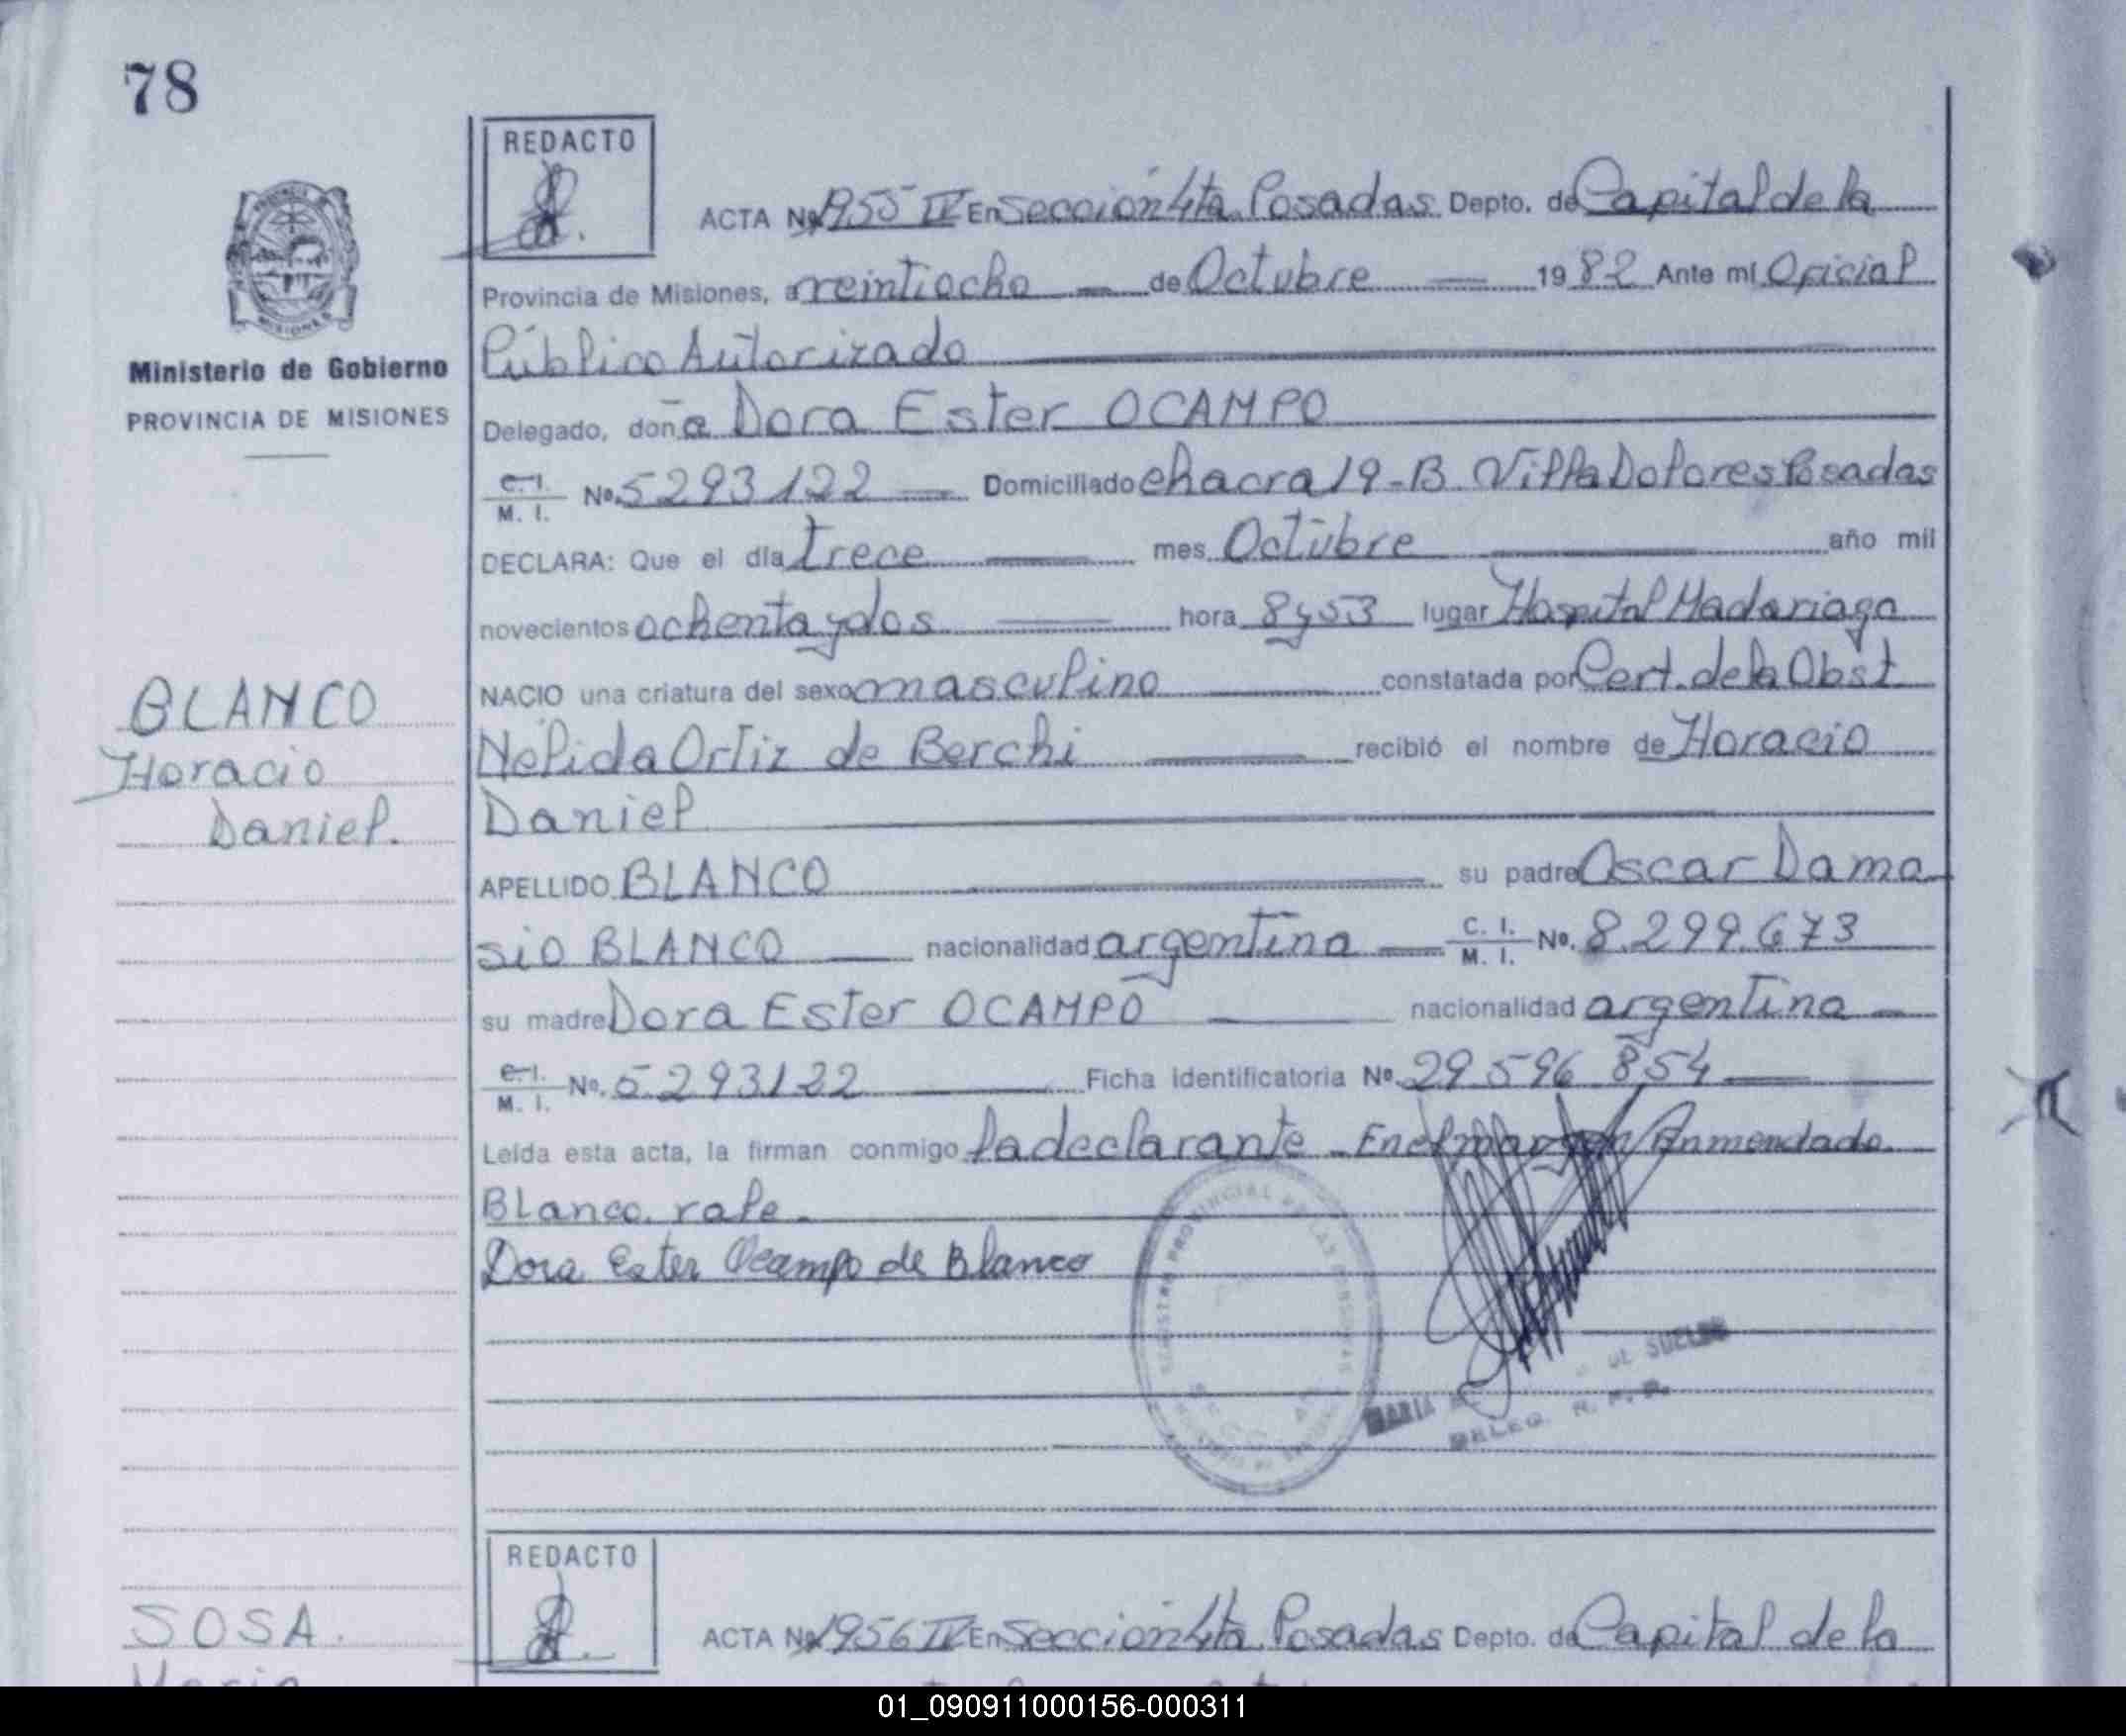 78
REDACTO
ACTA Nº 1955 IV En Sección 4ta. Posadas Depto. de Capital de la
Provincia de Misiones, a veintiocho — de Octubre — 1982 Ante mí Oficial
Público Autorizado
Ministerio de Gobierno
PROVINCIA DE MISIONES
Delegado, doña Dora Ester OCAMPO
C. I. M. I. No. 5293122 — Domiciliado chacra 19-B. Villa Dolores Posadas
DECLARA: Que el día trece — mes Octubre — año mil
novecientos ochenta y dos — hora 8 y 53 lugar Hospital Madariaga
NACIO una criatura del sexo masculino — constatada por Cert. de la Obst
Nélida Ortiz de Berchi — recibió el nombre de Horacio
Daniel
BLANCO
Horacio
Daniel.
APELLIDO BLANCO — su padre Oscar Dama
sio BLANCO — nacionalidad argentina — C. I. M. I. No. 8.299.673
su madre Dora Ester OCAMPO — nacionalidad argentina —
C. I. M. I. No. 5.293.122 — Ficha identificatoria Nº 29.596.854 —
Leída esta acta, la firman conmigo la declarante - En el margen Enmendado
Blanco. vale.
Dora Ester Ocampo de Blanco
REGISTRO PROVINCIAL DE LAS PERSONAS
MARIA DE SUELDO
DELEG. R. P. P.
REDACTO
SOSA.
ACTA Nº 1956 IV En Sección 4ta. Posadas Depto. de Capital de la
01_090911000156-000311